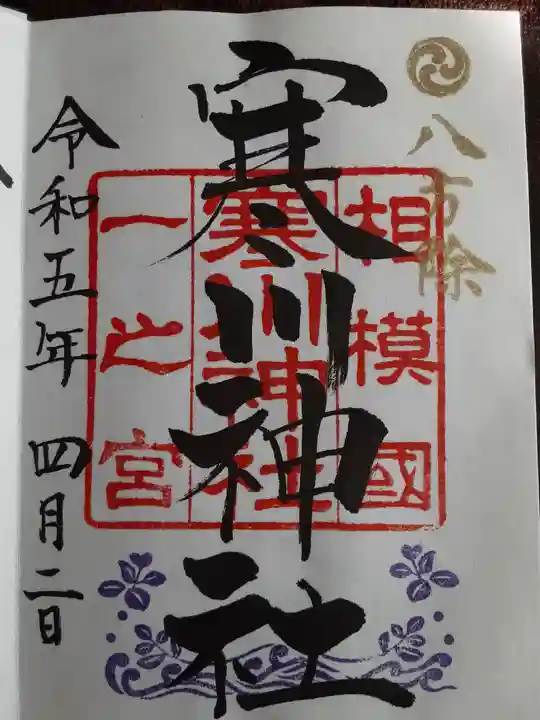 八方除
相模國
寒川神社
一之宮
寒川神社
令和五年 四月二日